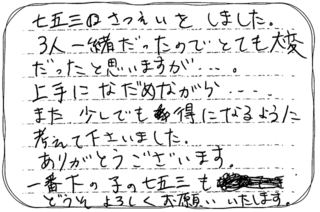 七五三のさつえいをしました。
3人一緒だったのでとても大変
だったと思いますが‥‥。
上手になだめながら‥‥
また少しでも得になるように
考えて下さいました。
ありがとうございます。
一番下の子の七五三も
どうぞよろしくお願いいたします。